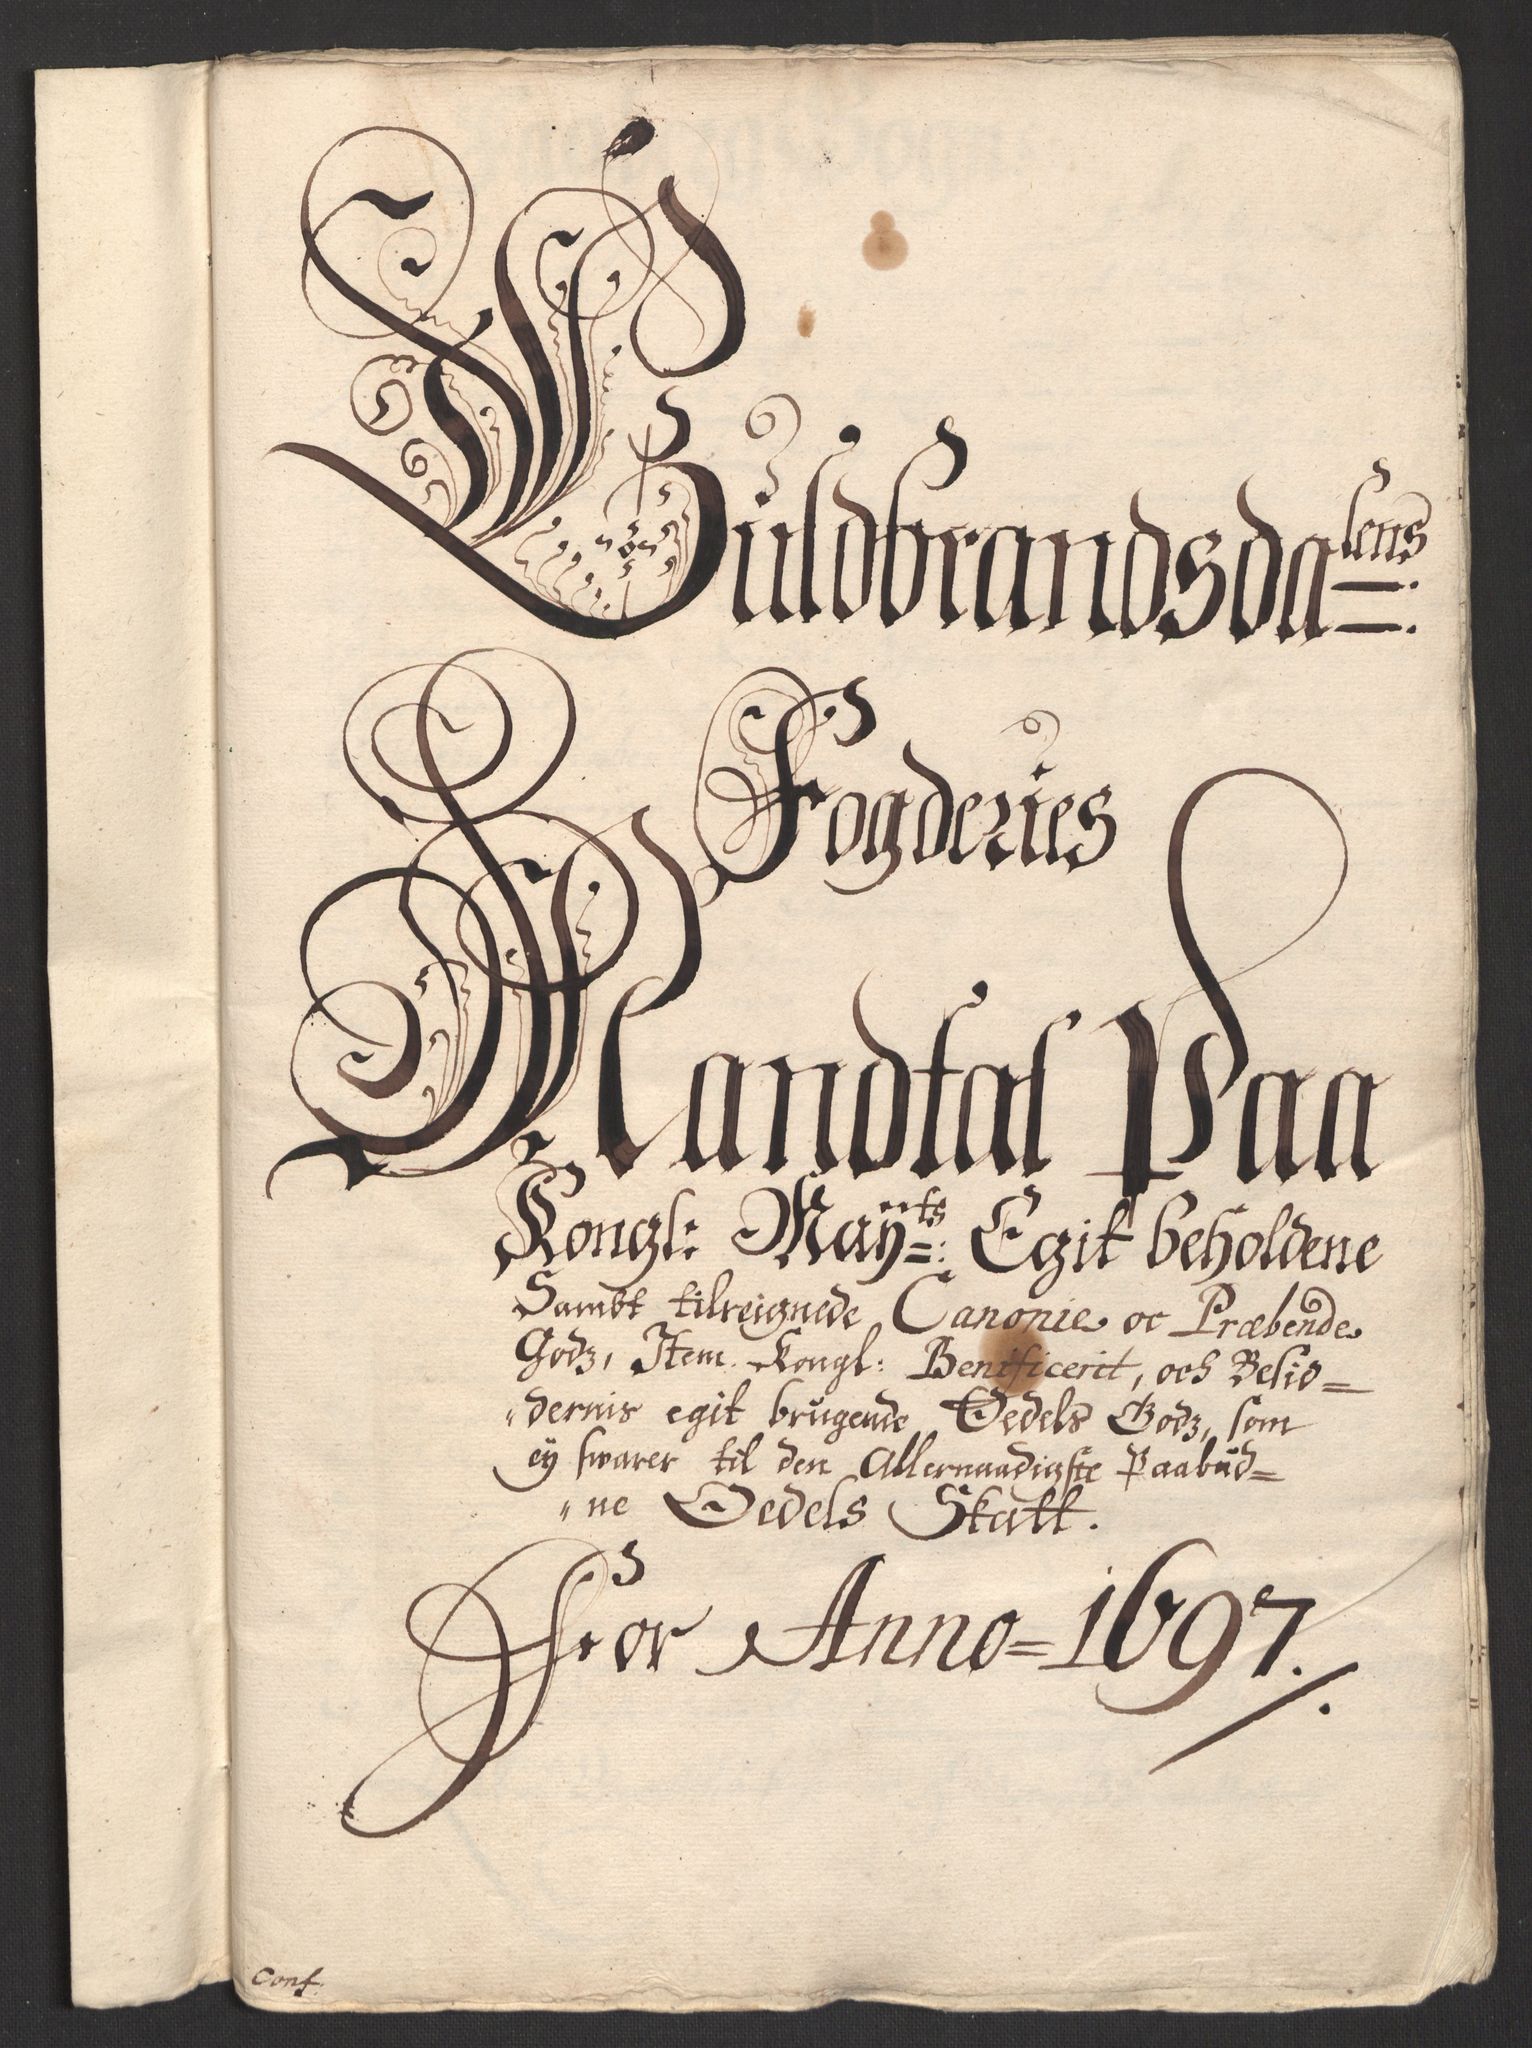 Guldbrandsdalens
Fogderies
Mandtal Paa
Kongl: Maÿts: Egit beholdene
Sambt tilreignede Canonie oc Præbende
Godz, Item Kongl: Benificerit, och Besid=
"dernis egit brugende Oedels Godz, som
eÿ swarer til den Allernaadigste Paabud=
"ne Oedels Skatt.
For Anno=1697.
Conf.